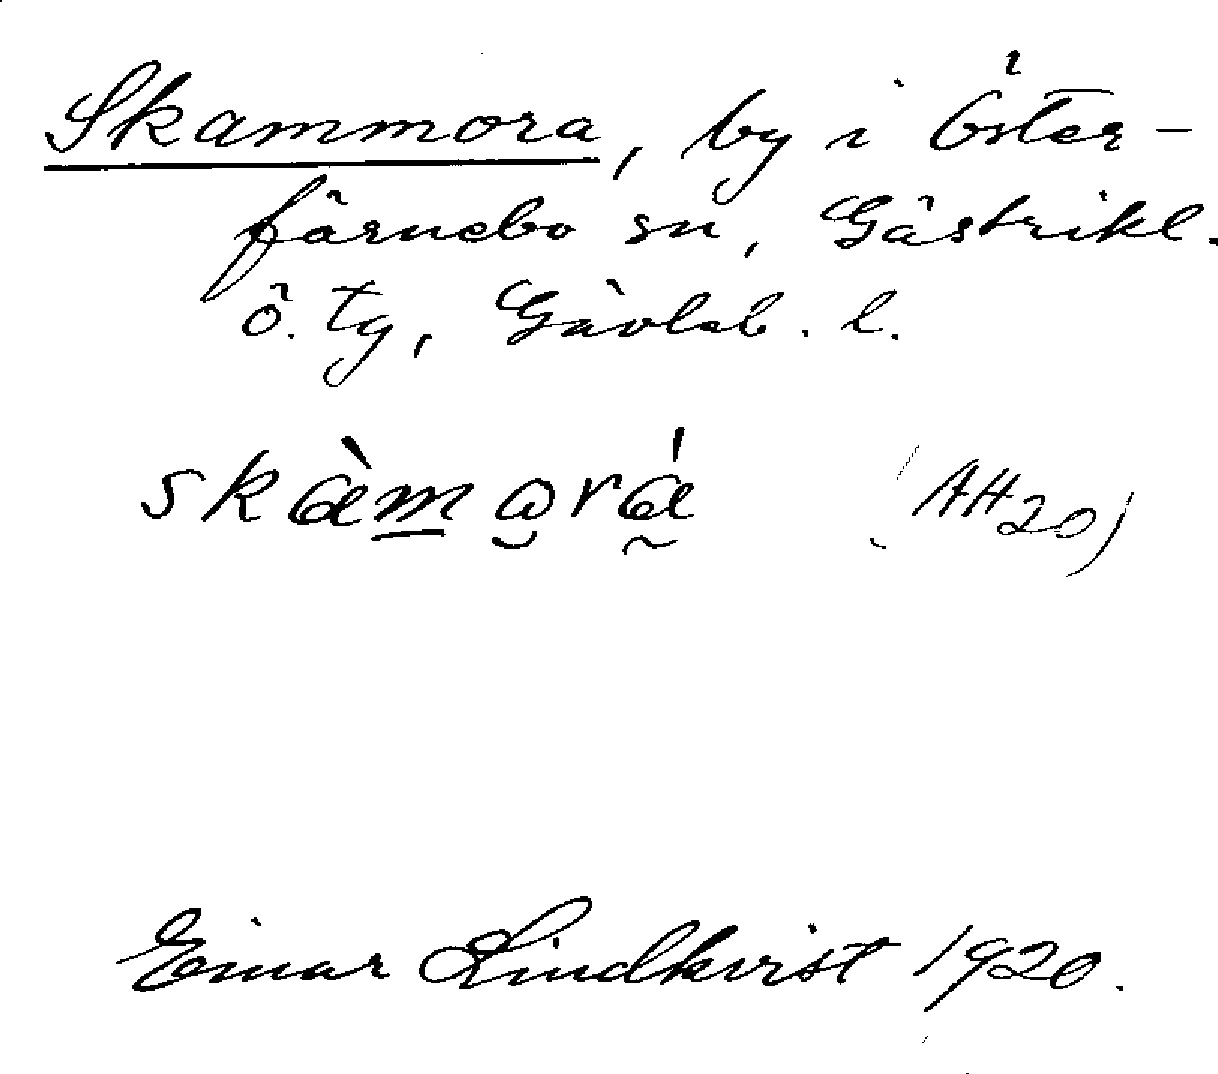 Skammora, by i Öster-
färnebo sn, Gästrikl.
ö. tg, Gävleb. l.
skàmorá (AH20)
Einar Lindkvist 1920.